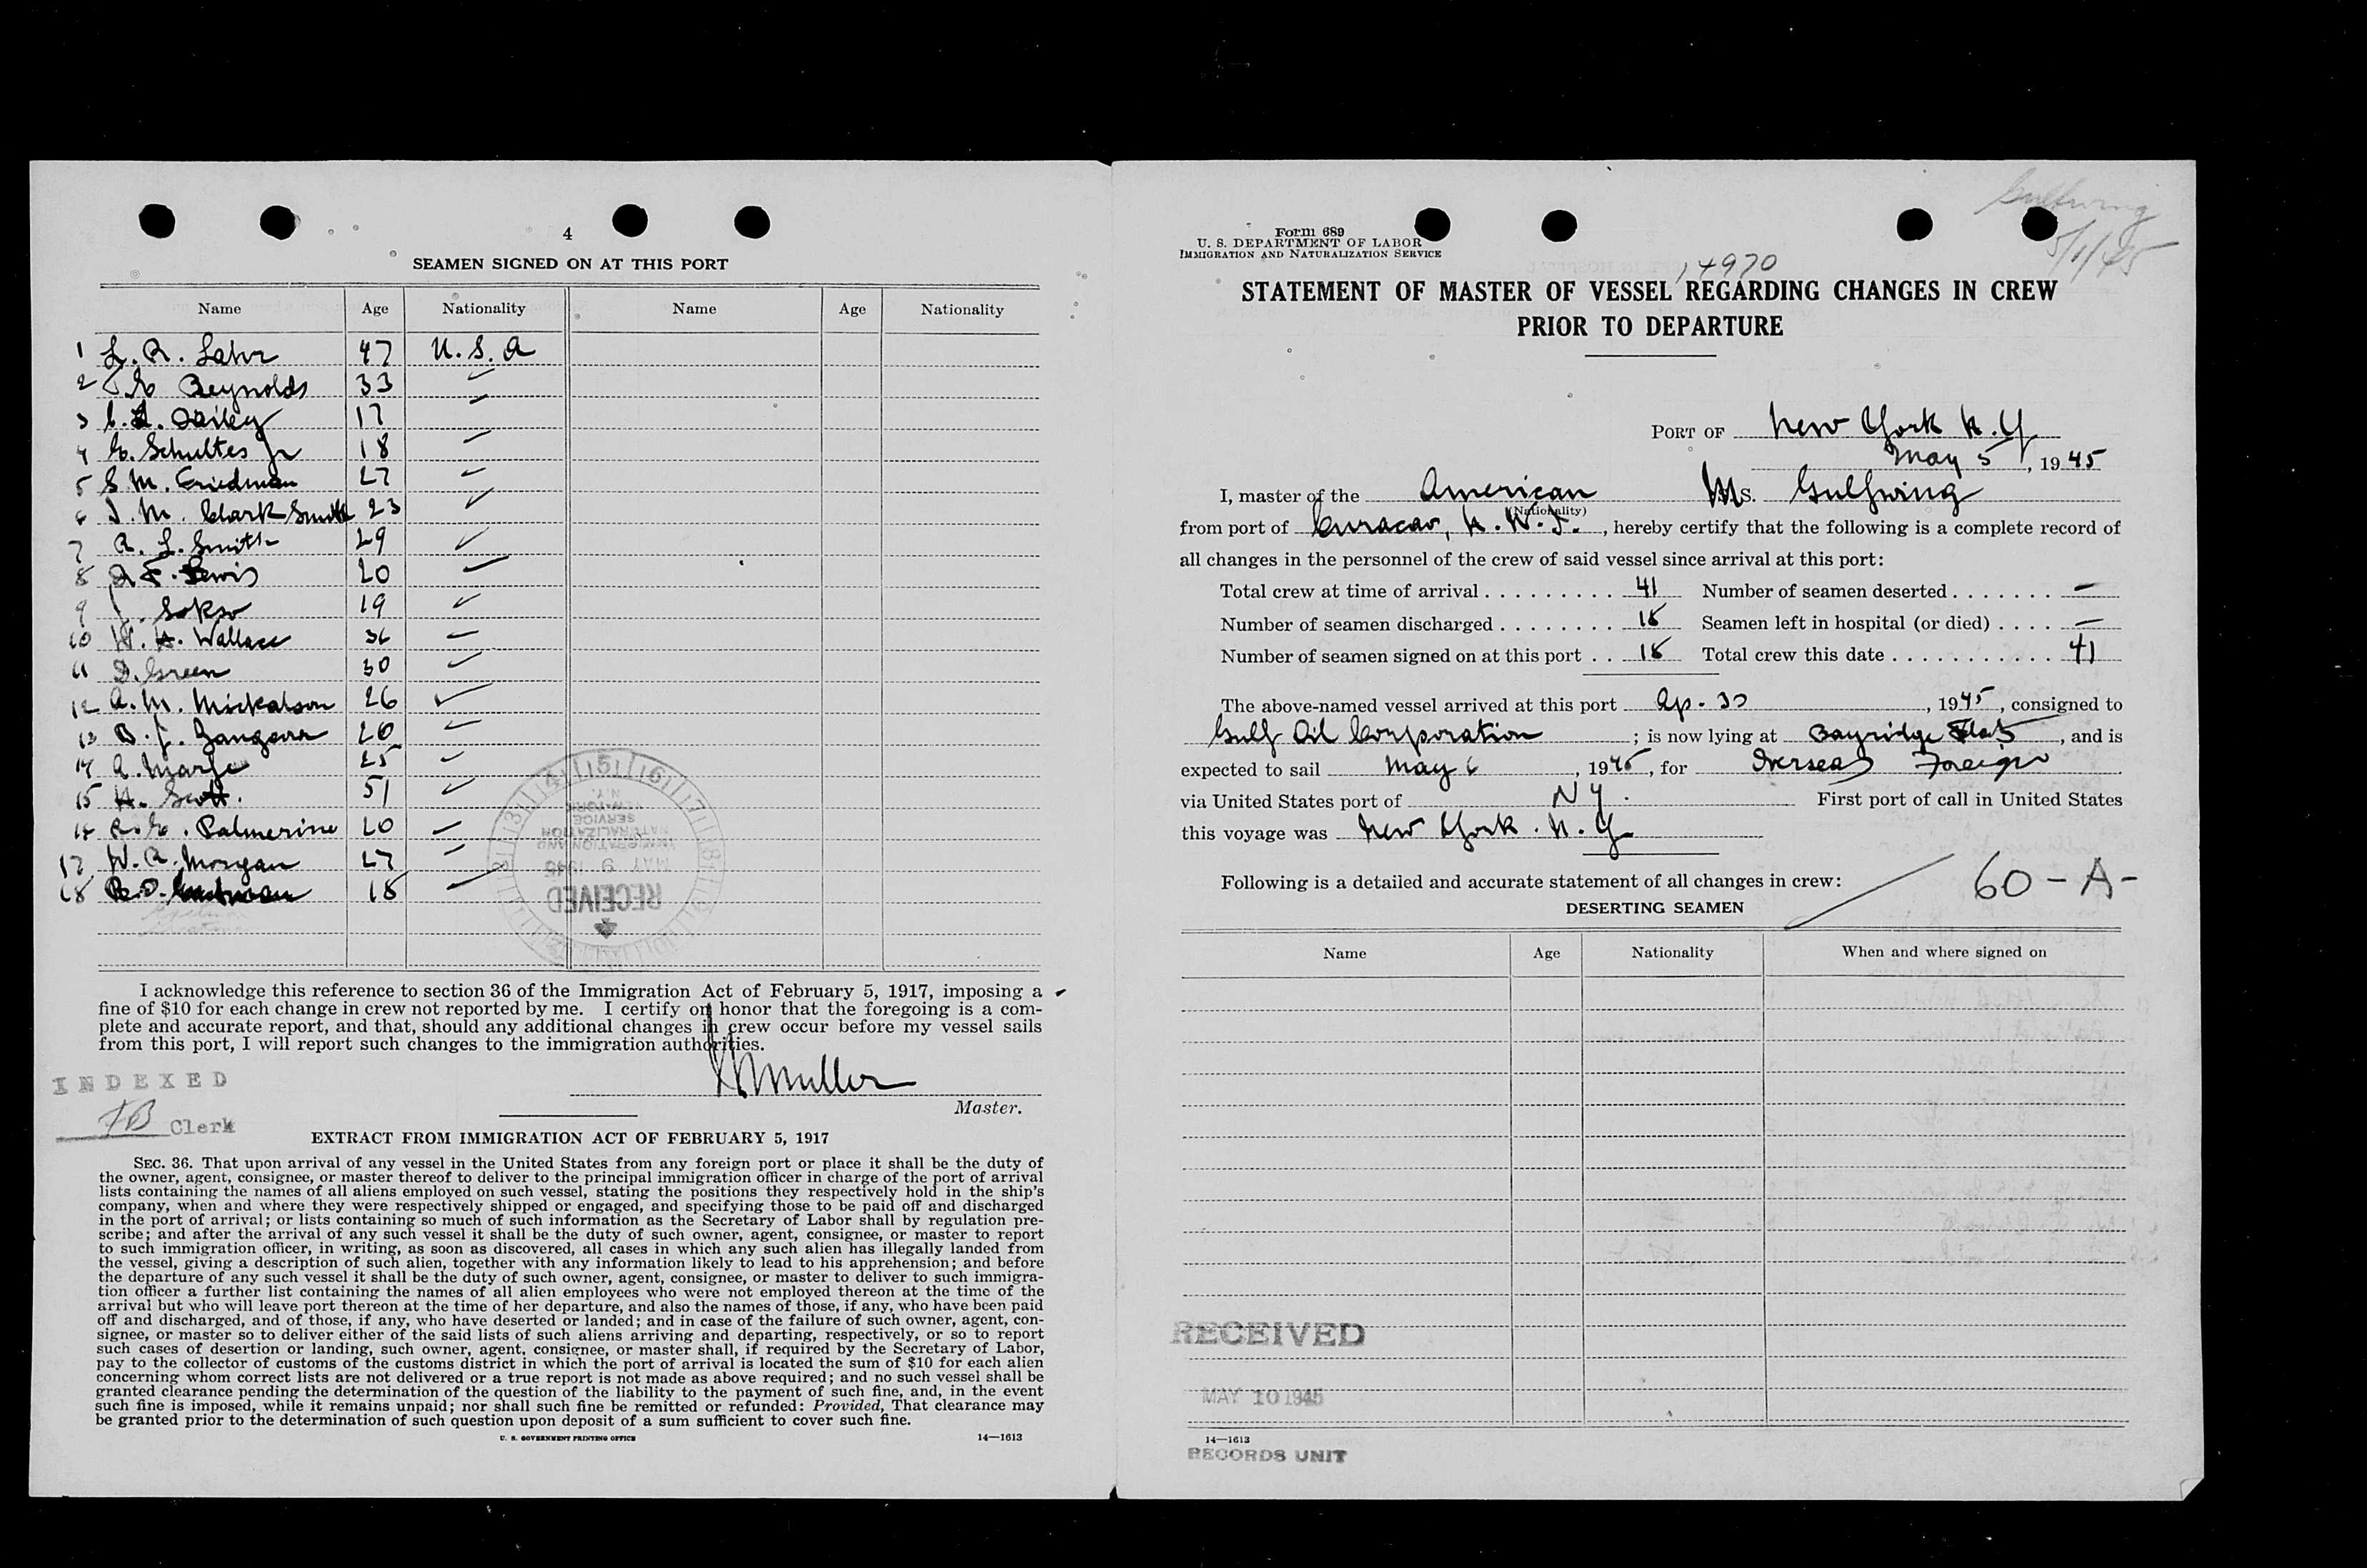 4
SEAMEN SIGNED ON AT THIS PORT
Name Age Nationality Name Age Nationality
1 L. R. Lahr 47 U.S.A
2 Reynolds 33 ✓
3 C. L. Dailey 17 ✓
4 G. Schultes Jr 18 ✓
5 S. M. Friedman 27 ✓
6 J. M. Clark Smith 23 ✓
7 R. L. Smith 29 ✓
8 F. Lewis 20 ✓
9 J. Sokso 19 ✓
10 W. H. Wallace 36 ✓
11 D. Green 30 ✓
12 A. M. Mickalson 26 ✓
13 B. J. 20 ✓
14 A. 25 ✓
15 H. Scott. 51 ✓
16 R. G. Palmerine 20 ✓
17 W. R. Morgan 27 ✓
18 R. O. 18 ✓
RECEIVED
MAY 9 1945
IMMIGRATION AND
NATURALIZATION
SERVICE
NEW YORK
N.Y.
I acknowledge this reference to section 36 of the Immigration Act of February 5, 1917, imposing a
fine of $10 for each change in crew not reported by me. I certify on honor that the foregoing is a com-
plete and accurate report, and that, should any additional changes in crew occur before my vessel sails
from this port, I will report such changes to the immigration authorities.
INDEXED
Muller
Master.
FB Clerk
EXTRACT FROM IMMIGRATION ACT OF FEBRUARY 5, 1917
SEC. 36. That upon arrival of any vessel in the United States from any foreign port or place it shall be the duty of
the owner, agent, consignee, or master thereof to deliver to the principal immigration officer in charge of the port of arrival
lists containing the names of all aliens employed on such vessel, stating the positions they respectively hold in the ship's
company, when and where they were respectively shipped or engaged, and specifying those to be paid off and discharged
in the port of arrival; or lists containing so much of such information as the Secretary of Labor shall by regulation pre-
scribe; and after the arrival of any such vessel it shall be the duty of such owner, agent, consignee, or master to report
to such immigration officer, in writing, as soon as discovered, all cases in which any such alien has illegally landed from
the vessel, giving a description of such alien, together with any information likely to lead to his apprehension; and before
the departure of any such vessel it shall be the duty of such owner, agent, consignee, or master to deliver to such immigra-
tion officer a further list containing the names of all alien employees who were not employed thereon at the time of the
arrival but who will leave port thereon at the time of her departure, and also the names of those, if any, who have been paid
off and discharged, and of those, if any, who have deserted or landed; and in case of the failure of such owner, agent, con-
signee, or master so to deliver either of the said lists of such aliens arriving and departing, respectively, or so to report
such cases of desertion or landing, such owner, agent, consignee, or master shall, if required by the Secretary of Labor,
pay to the collector of customs of the customs district in which the port of arrival is located the sum of $10 for each alien
concerning whom correct lists are not delivered or a true report is not made as above required; and no such vessel shall be
granted clearance pending the determination of the question of the liability to the payment of such fine, and, in the event
such fine is imposed, while it remains unpaid; nor shall such fine be remitted or refunded: Provided, That clearance may
be granted prior to the determination of such question upon deposit of a sum sufficient to cover such fine.
U. S. GOVERNMENT PRINTING OFFICE 14—1613
Gulfwing
5/1/45
Form 689
U. S. DEPARTMENT OF LABOR
IMMIGRATION AND NATURALIZATION SERVICE
14970
STATEMENT OF MASTER OF VESSEL REGARDING CHANGES IN CREW
PRIOR TO DEPARTURE
PORT OF New York N.Y
May 5, 1945
I, master of the American Ms. Gulfwing
(Nationality)
from port of Curacao, N.W.I., hereby certify that the following is a complete record of
all changes in the personnel of the crew of said vessel since arrival at this port:
Total crew at time of arrival . . . . . . . . . 41 Number of seamen deserted . . . . . . . —
Number of seamen discharged . . . . . . . . 18 Seamen left in hospital (or died) . . . . —
Number of seamen signed on at this port . . 18 Total crew this date . . . . . . . . . . . . 41
The above-named vessel arrived at this port Ap. 30, 1945, consigned to
Gulf Oil Corporation; is now lying at Bayridge Flats, and is
expected to sail May 6, 1945, for Overseas Foreign
via United States port of NY. First port of call in United States
this voyage was New York. N.Y
Following is a detailed and accurate statement of all changes in crew: 60-A-
DESERTING SEAMEN
Name Age Nationality When and where signed on
RECEIVED
MAY 10 1945
14—1613
RECORDS UNIT